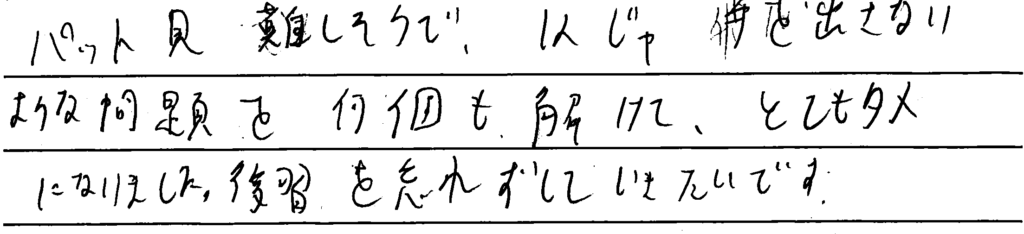 パット見 難しそうで、1人じゃ 手を出さない
ような問題を 何個も 解けて、とてもタメ
になりました。復習を忘れずしていきたいです。